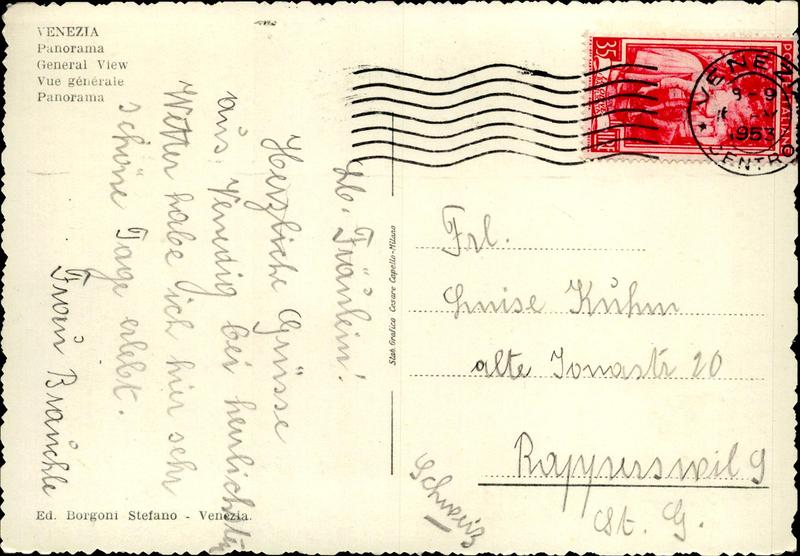 VENEZIA
Panorama
General View
Vue générale
Panorama
Lb. Fräulein!
Herzliche Grüsse
aus Venedig bei herrlichstem
Wetter habe ich hier sehr
schöne Tage erlebt.
Frau Bräuchle
Ed. Borgoni Stefano - Venezia.
Stab. Grafico Cesare Capello-Milano
35
VENEZIA
8-9
1953
CENTRO
Frl.
Luise Kuhm
alte Jonastr 20
Rapperswil
St. G.
Schweiz